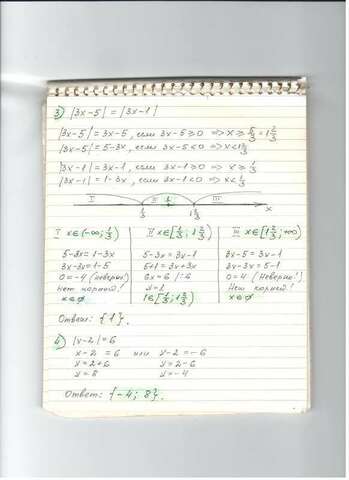 3) |3x-5| = |3x-1|
|3x-5| = 3x-5, если 3x-5≥0 ⇒ x≥5/3=1 2/3
|3x-5| = 5-3x, если 3x-5<0 ⇒ x<1 2/3
|3x-1| = 3x-1, если 3x-1≥0 ⇒ x≥1/3
|3x-1| = 1-3x, если 3x-1<0 ⇒ x<1/3
I II III
1/3 1 2/3 x
I x∈(-∞; 1/3) II x∈[1/3; 1 2/3) III x∈[1 2/3; +∞)
5-3x = 1-3x 5-3x = 3x-1 3x-5 = 3x-1
3x-3x = 1-5 5+1 = 3x+3x 3x-3x = 5-1
0 = -4 (неверно!) 6x = 6 |:6 0 = 4 (Неверно!)
Нет корней! x=1 Нет корней!
x∈∅ 1∈[1/3; 1 2/3) x∈∅
Ответ: {1}.
4) |x-2| = 6
x-2 = 6 или x-2 = -6
x = 2+6 x = 2-6
x = 8 x = -4
Ответ: {-4; 8}.